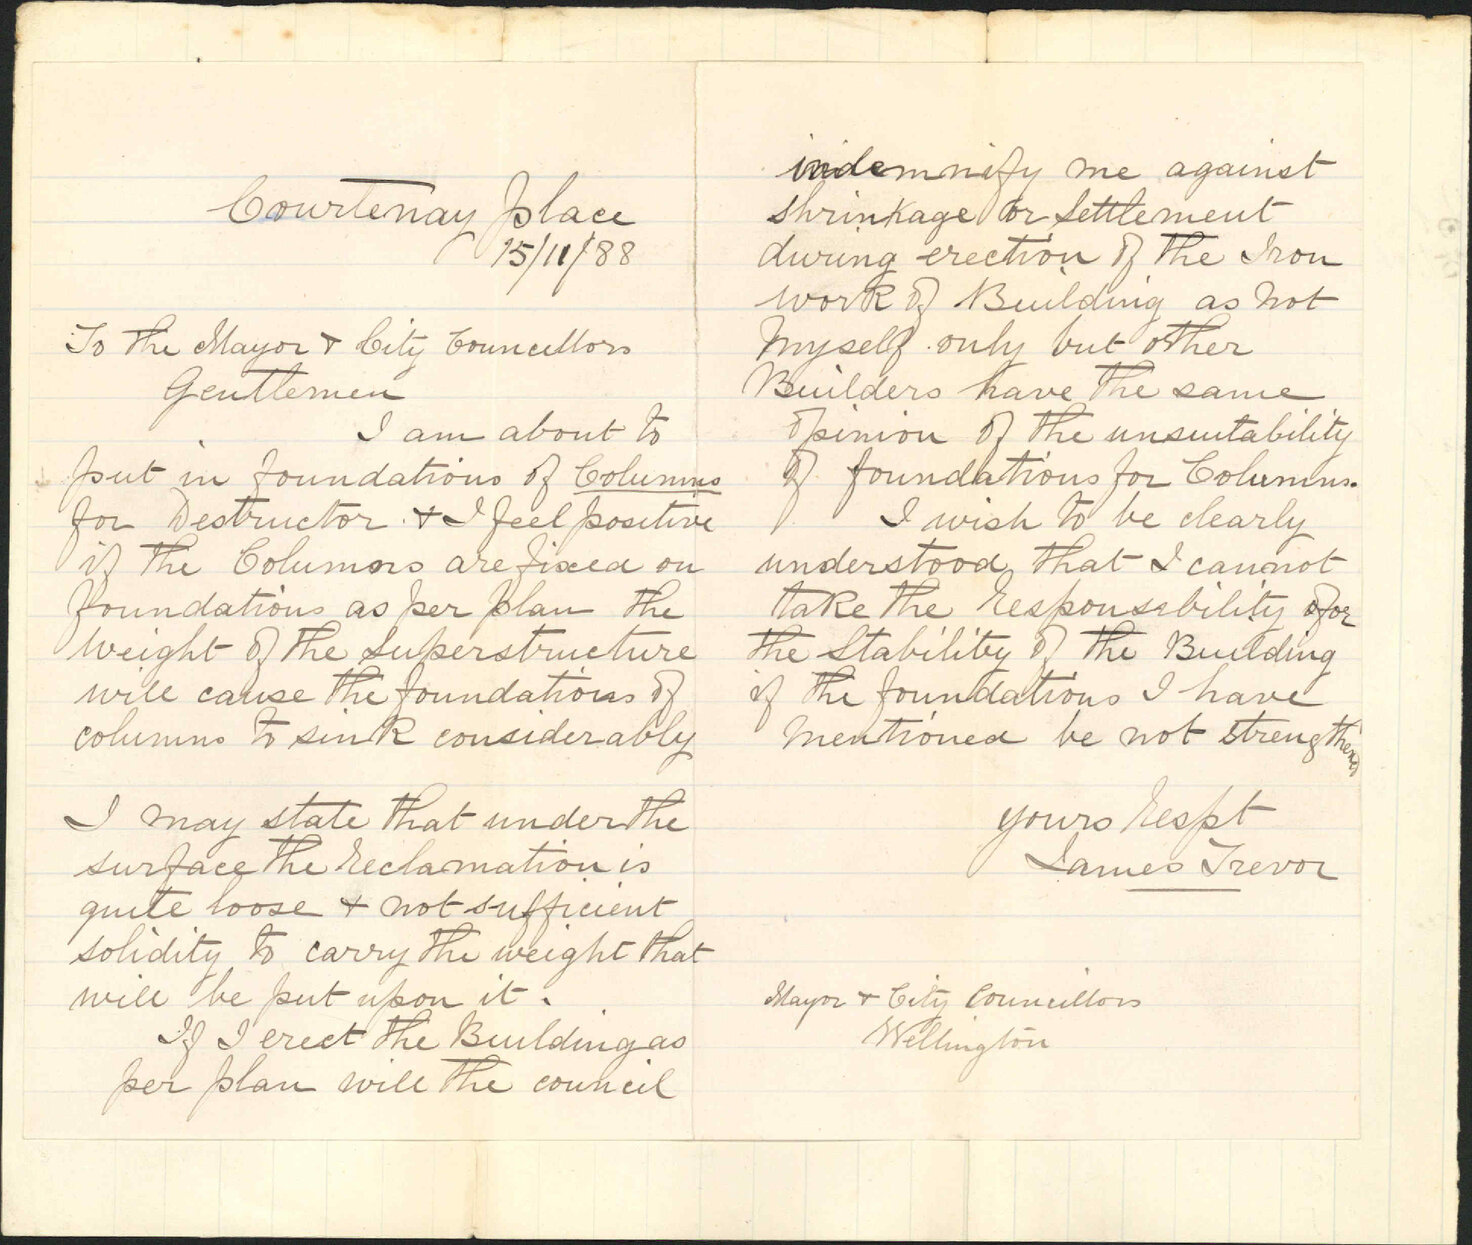 Courtenay place
15/11/88
To the Mayor & City Councillors
Gentlemen
I am about to
put in foundations of Columns
for Destructor & I feel positive
if the Columns are fixed on
foundations as per plan the
weight of the superstructure
will cause the foundations of
columns to sink considerably
I may state that under the
surface the reclamation is
quite loose & not sufficient
solidity to carry the weight that
will be put upon it.
If I erect the Building as
per plan will the council
indemnify me against
shrinkage or settlement
during erection of the Iron
work of Building as not
myself only but other
Builders have the same
opinion of the unsuitability
of foundations for Columns.
I wish to be clearly
understood that I cannot
take the responsibility for
the stability of the Building
if the foundations I have
mentioned be not strengthened
yours respt
James Trevor
Mayor & City Councillors
Wellington